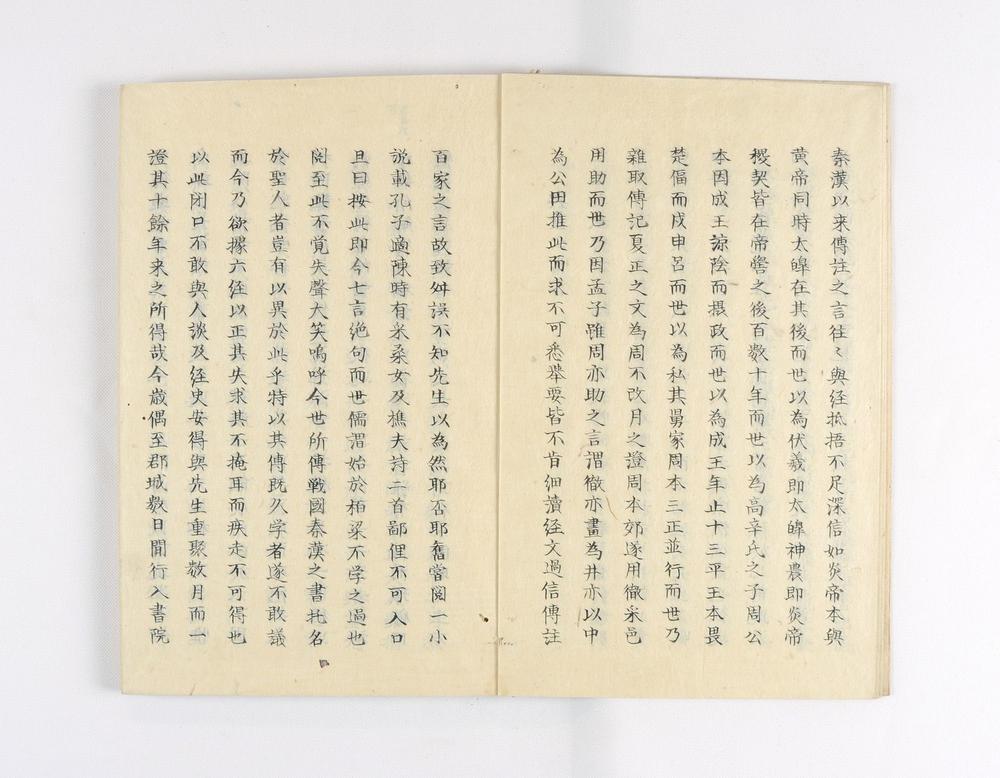 秦漢以来傳註之言往〻與経抵捂不足深信如炎帝本與
黄帝同時太皡在其後而世以為伏羲即太皡神農即炎帝
稷契皆在帝嚳之後百数十年而世以為高辛氏之子周公
本因成王諒陰而摂政而世以為成王年止十三平王本畏
楚偪而戍申呂而世以為私其舅家周本三正並行而世乃
雜取傳記夏正之文為周不改月之證周本郊遂用徹采邑
用助而世乃因孟子雖周亦助之言謂徹亦畫為井亦以中
為公田推此而求不可悉舉要皆不肯細讀経文過信傳註
百家之言故致舛誤不知先生以為然耶否耶舊嘗閲一小
説載孔子適陳時有采桑女及樵夫詩二首鄙俚不可入口
且曰按此即今七言絶句而世儒謂始於栢梁不学之過也
閲至此不覚失聲大笑嗚呼今世所傳戰國秦漢之書托名
於聖人者豈有以異於此乎特以其傳既久学者遂不敢議
而今乃欲據六経以正其失求其不掩耳而疾走不可得也
以此閉口不敢與人談及経史安得與先生重聚数月而一
證其十餘年来之所得哉今歳偶至郡城数日聞行入書院